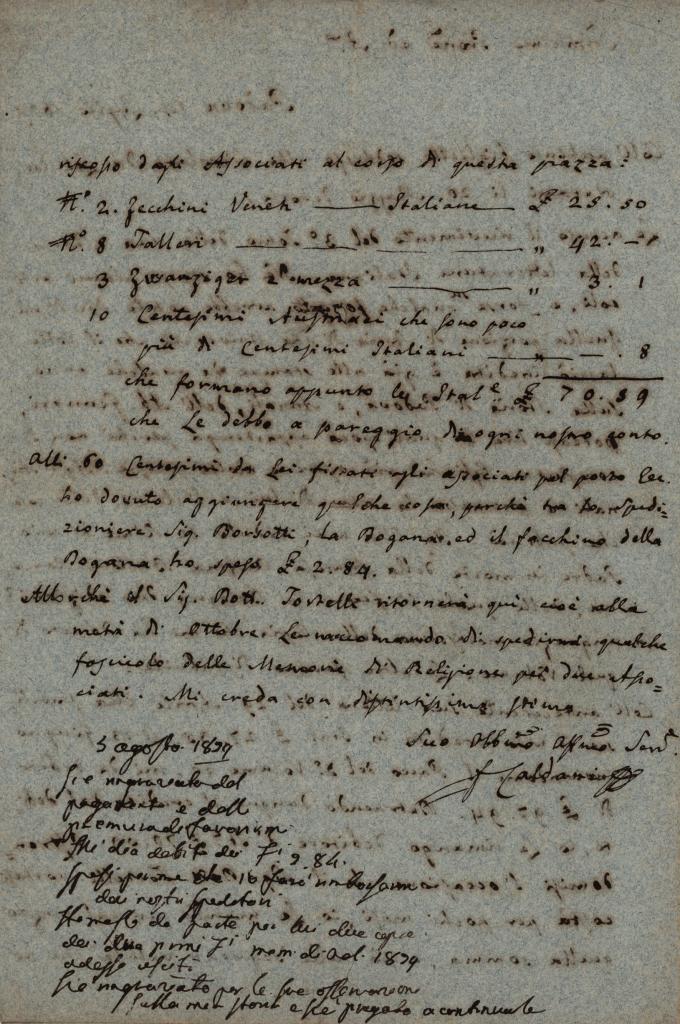 riscosso dagli Associati al corso di questa piazza:
N.º 2. Zecchini Veneti — Italiane — £ 25. 50
N.º 8 Talleri — „ 42. –
3 Zwanziger e mezza — „ 3. 1
10 Centesimi Austriaci che sono poco
più di Centesimi Italiani — „ — . 8
che formano appunto le Ital.e £ 70. 59
che Le debbo a pareggio di ogni nostro conto.
Alli 60 Centesimi da Lei fissati agli associati pel porto Ecc.
ho dovuto aggiungere qualche cosa, perchè tra lo spedi=
zioniere, Sig. Borsotti, la Dogana, ed il facchino della
Dogana, ho speso £ 2. 84.
Allorchè il Sig. Dott. ritornerà qui, cioè alla
metà di Ottobre, Le raccomando di spedirmi qualche
fascicolo delle Memorie di Religione pei due Asso=
ciati. Mi creda con distintissima stima
Suo Obbmo Affmo Serv.
5 agosto 1839
Si è ringraziato del
pagamento e della
premura di favorirmi
Mi dia debito dei 2 84.
spesi per me
dai nostri speditori
da parte per lui due copie
dei due primi mem. di Rel. 1839
adesso usciti
Si è ringraziato per le sue osservazioni
sulla mia storia e si è pregato a continuarle